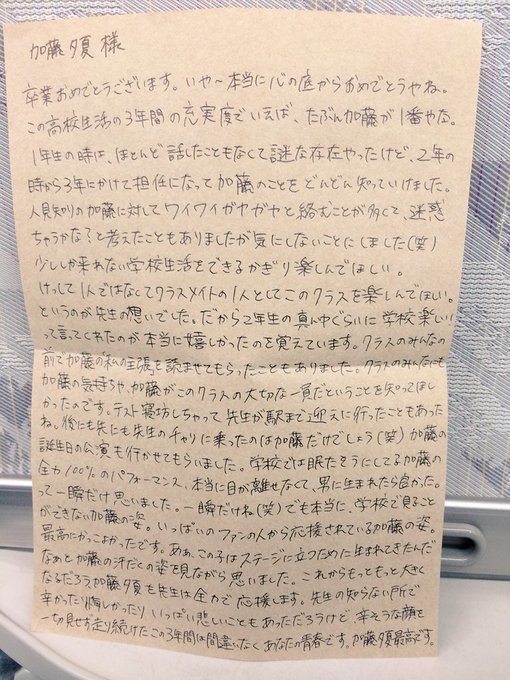 加藤夕夏様
卒業おめでとうございます。いや〜本当に心の底からおめでとうやね。
この高校生活の3年間の充実度でいえば、たぶん加藤が1番やな。
1年生の時は、ほとんど話したこともなくて謎な存在やったけど、2年の
時から3年にかけて担任になって加藤のことをどんどん知っていけました。
人見知りの加藤に対してワイワイガヤガヤと絡むことが多くて、迷惑
ちゃうかな?と考えたこともありましたが気にしないことにしました(笑)
少ししか来れない学校生活をできるかぎり楽しんでほしい。
けっして1人ではなくてクラスメイトの1人としてこのクラスを楽しんでほしい。
というのが先生の想いでした。だから2年生の真ん中ぐらいに学校楽しい!
って言ってくれたのが本当に嬉しかったのを覚えています。クラスのみんなの
前で加藤の私の主張を読ませてもらったこともありました。クラスのみんなにも
加藤の気持ちや、加藤がこのクラスの大切な一員だということを知ってほし
かったのです。テスト寝坊しちゃって先生が駅まで迎えに行ったこともあった
ね。後にも先にも先生のチャリに乗ったのは加藤だけでしょう(笑)加藤の
誕生日の公演も行かせてもらいました。学校では眠たそうにしてる加藤の
全力100%のパフォーマンス、本当に目が離せなくて、男に生まれたら良かった。
って一瞬だけ思いました。一瞬だけね(笑)でも本当に、学校で見ること
ができない加藤の姿。いっぱいのファンの人から応援されている加藤の姿。
最高にかっこよかったです。あぁ、この子はステージに立つために生まれてきたんだ
なぁと加藤の汗だくの姿を見ながら思いました。これからもっともっと大きく
なるだろう加藤夕夏を先生は全力で応援します。先生の知らない所で
辛かったり悔しかったりいっぱい悲しいこともあっただろうけど、辛そうな顔を
一切見せず走り続けたこの3年間は間違いなくあなたの青春です。加藤夕夏最高です。